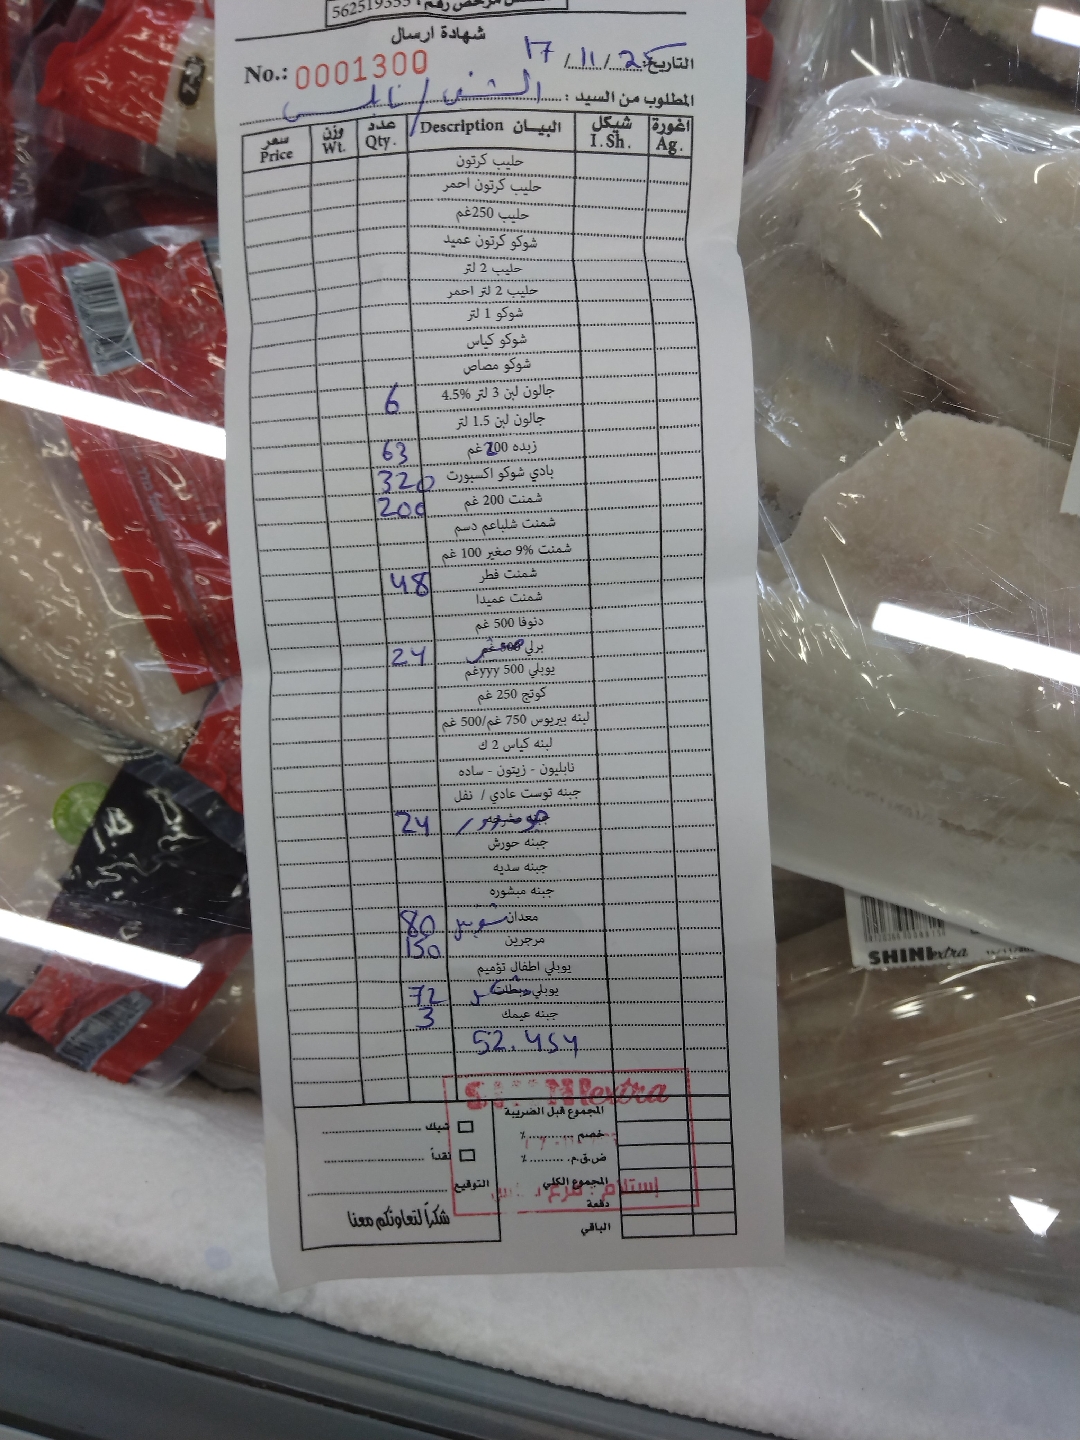 562519355
شهادة ارسال
No.: 0001300
التاريخ: 17/11/25
المطلوب من السيد : الشني / نابلس
سعر Price وزن Wt. عدد Qty. البيان Description شيكل I.Sh. اغورة Ag.
حليب كرتون
حليب كرتون احمر
حليب 250غم
شوكو كرتون عميد
حليب 2 لتر
حليب 2 لتر احمر
شوكو 1 لتر
شوكو كياس
شوكو مصاص
جالون لبن 3 لتر 4.5% 6
جالون لبن 1.5 لتر
زبده 200غم 63
بادي شوكو اكسبورت 320
شمنت 200 غم 200
شمنت شلباعم دسم
شمنت 9% صغير 100 غم
شمنت فطر 48
شمنت عميدا
دنوفا 500 غم
برلي 500 غم 24
يوبلي yyy 500غم
كوتج 250 غم
لبنه بيريوس 750 غم/500 غم
لبنه كياس 2 ك
نابليون - زيتون - ساده
جبنه توست عادي / نفل
جبنه 24
جبنه حورش
جبنه سديه
جبنه مبشوره
معدان 80
مرجرين 150
يوبلي اطفال تؤميم
يوبلي 72
جبنه عيمك 3
52.454
SHINI extra
المجموع قبل الضريبة
شيك
خصم ٪
نقداً
ض.ق.م. ٪
المجموع الكلي
التوقيع
إستلام : فرع
دفعة
شكراً لتعاونكم معنا
الباقي
SHINI extra